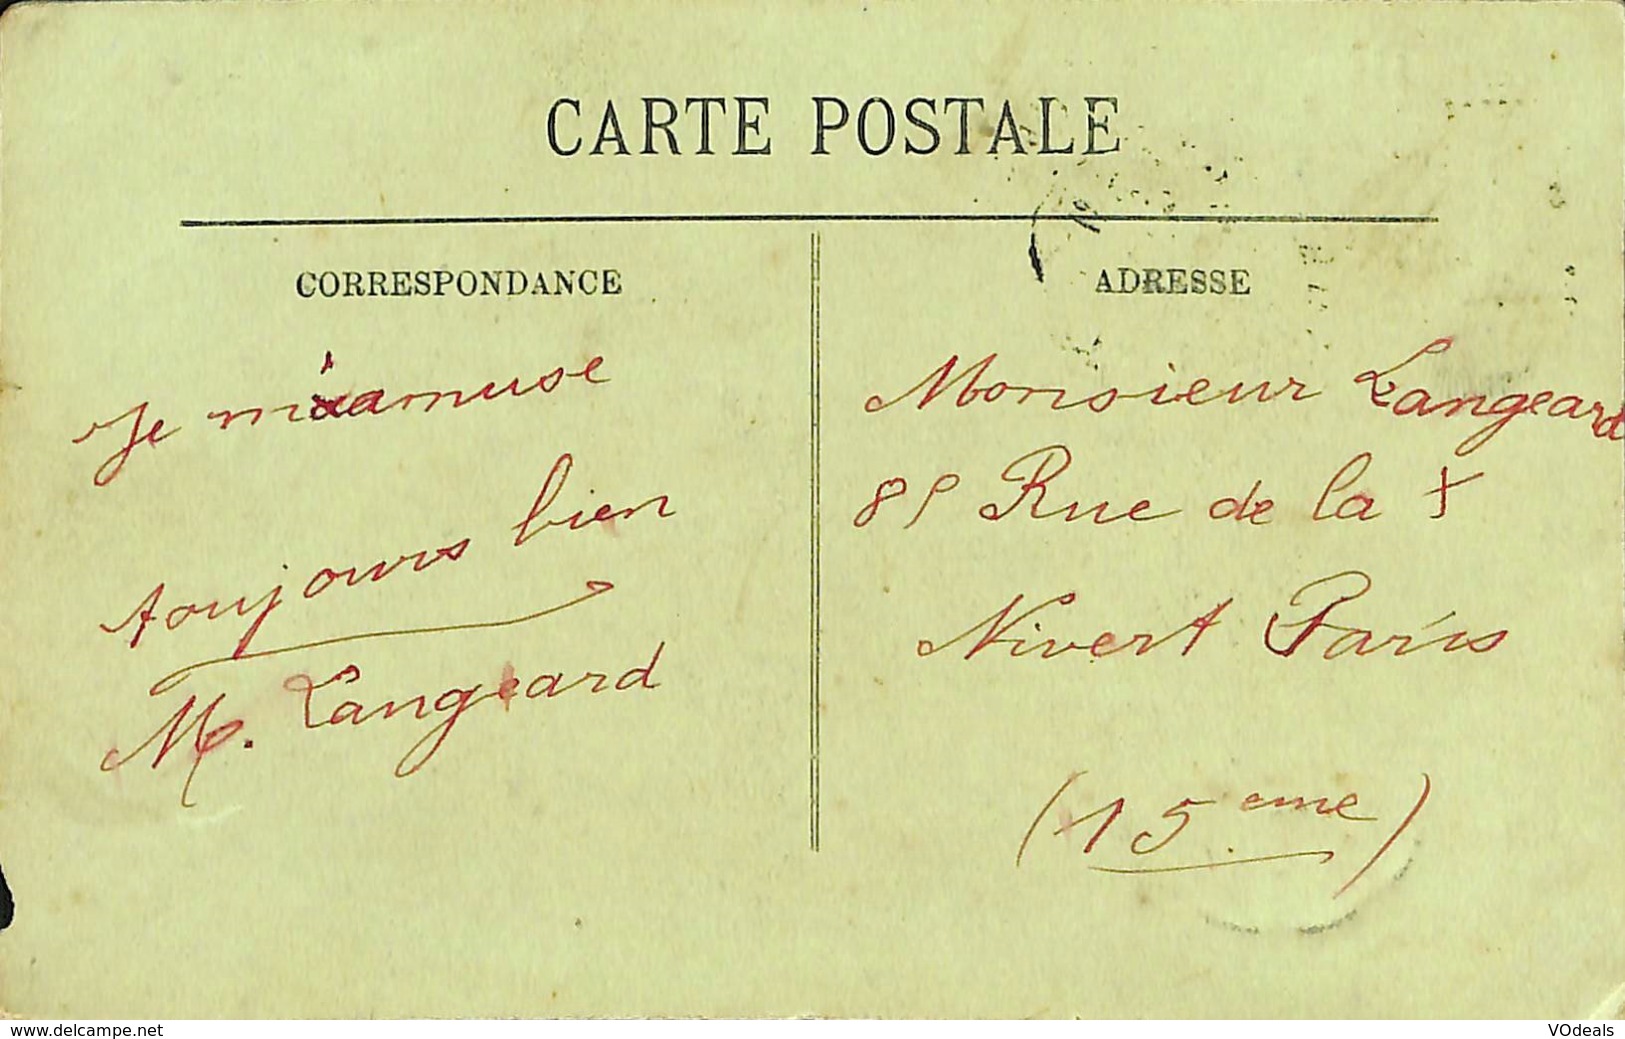 CARTE POSTALE
CORRESPONDANCE
Je m'amuse
toujours bien
M. Langeard
ADRESSE
Monsieur Langeard
85 Rue de la +
Nivert Paris
(15eme)
www.delcampe.net
VOdeals